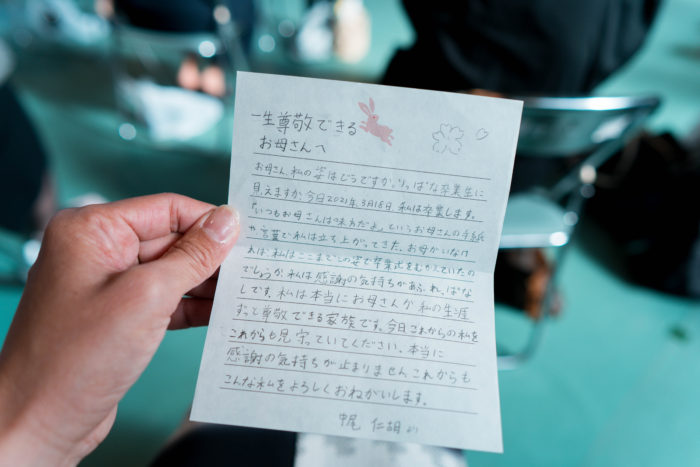 一生尊敬できる
お母さんへ
お母さん、私の姿はどうですか。りっぱな卒業生に
見えますか。今日2021年、3月18日、私は卒業します。
「いつもお母さんは味方だよ。」というお母さんの手紙
や言葉で私は立ち上がってきた。お母がいなけ
れば、私はここまでこの姿で卒業式をむかえていたの
でしょうか、私は感謝の気持ちがあふれ、ぱな
しです。私は本当にお母さんが私の生涯
ずっと尊敬できる家族です。今日これからの私を
これからも見守っていてください。本当に
感謝の気持ちが止まりません。これからも
こんな私をよろしくおねがいします。
中尾 仁胡 より